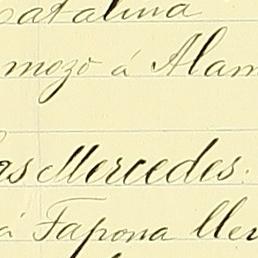 Catalina
mozo á Alam
las Mercedes.
á Tapona lle